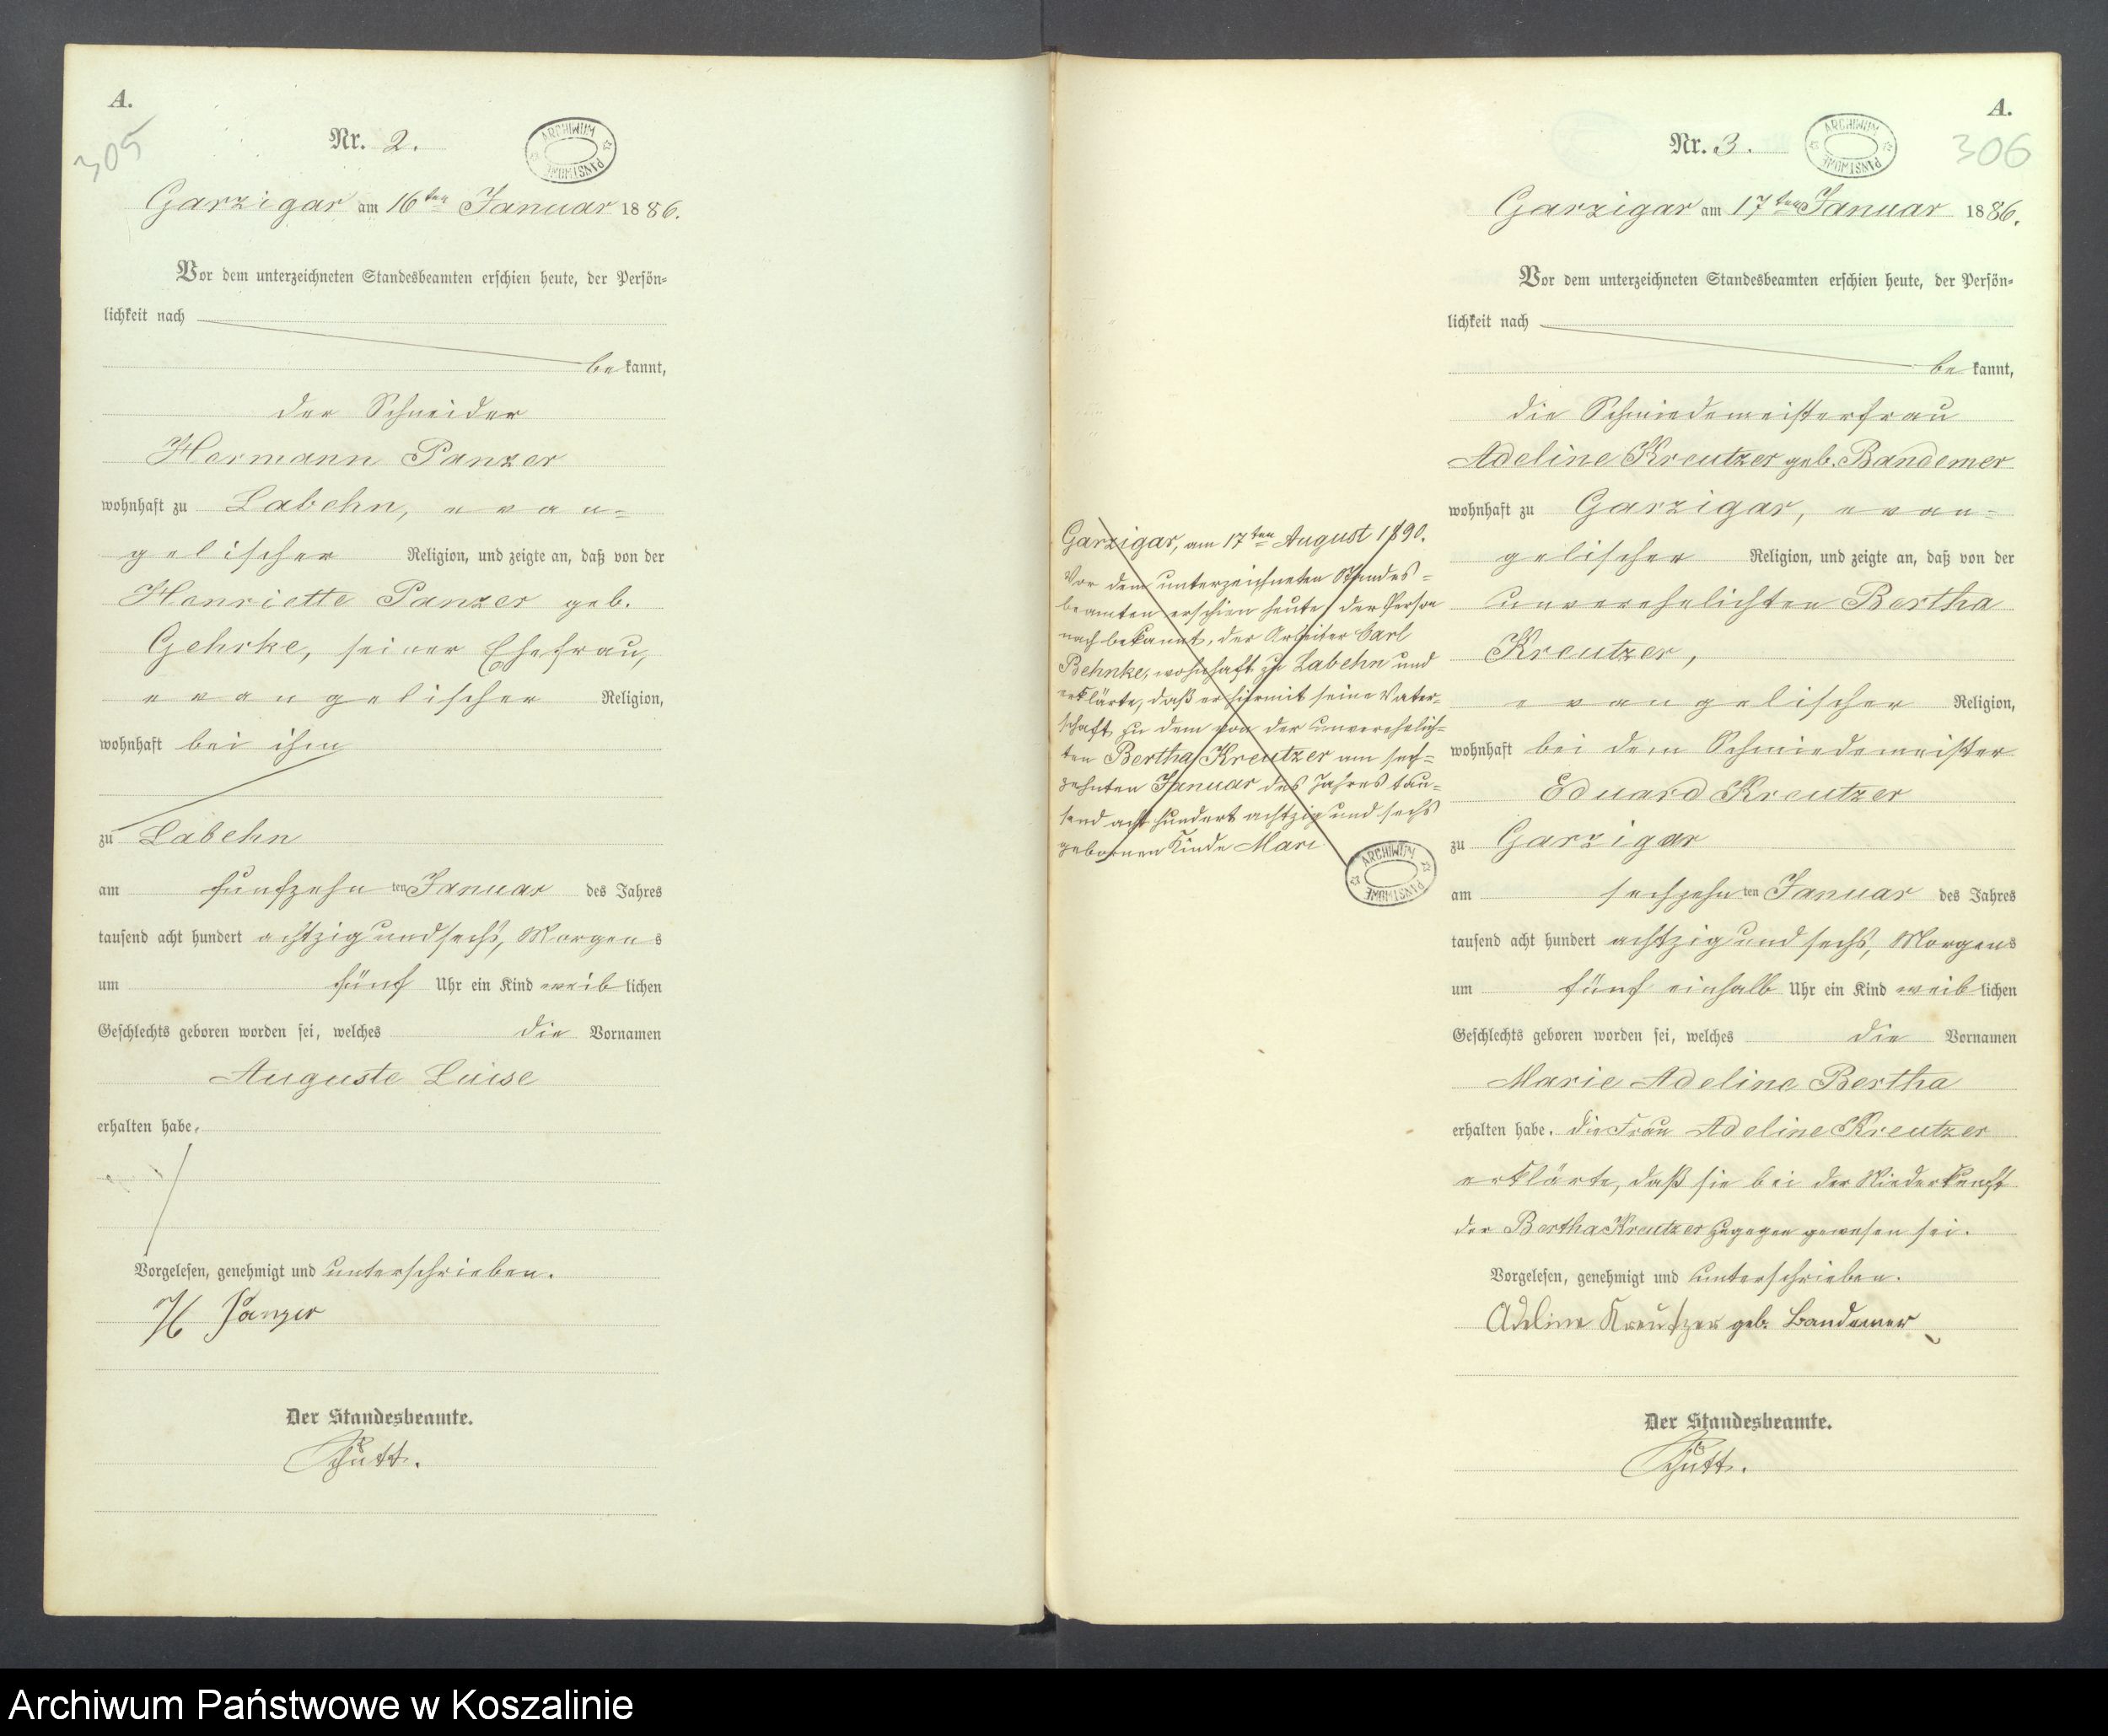 A.
305
Nr. 2.
ARCHIWUM PAŃSTWOWE
Garzigar am 16ten Januar 1886.
Vor dem unterzeichneten Standesbeamten erschien heute, der Persön-
lichkeit nach
be kannt,
der Schneider
Hermann Panzer
wohnhaft zu Labehn, evan-
gelischer Religion, und zeigte an, daß von der
Henriette Panzer geb.
Gehrke, seiner Ehefrau,
evangelischer Religion,
wohnhaft bei ihm
zu Labehn
am fünfzehn ten Januar des Jahres
tausend acht hundert achtzig und sechs, Morgens
um fünf Uhr ein Kind weib lichen
Geschlechts geboren worden sei, welches die Vornamen
Auguste Luise
erhalten habe.
Vorgelesen, genehmigt und unterschrieben.
H Panzer
Der Standesbeamte.
Schütt.
A.
306
Nr. 3.
ARCHIWUM PAŃSTWOWE
Garzigar am 17ten Januar 1886.
Vor dem unterzeichneten Standesbeamten erschien heute, der Persön-
lichkeit nach
be kannt,
die Schmiedemeisterfrau
Adeline Kreutzer geb. Bandemer
wohnhaft zu Garzigar, evan-
gelischer Religion, und zeigte an, daß von der
unverehelichten Bertha
Kreutzer,
evangelischer Religion,
wohnhaft bei dem Schmiedemeister
Eduard Kreutzer
zu Garzigar
am sechzehn ten Januar des Jahres
tausend acht hundert achtzig und sechs, Morgens
um fünf einhalb Uhr ein Kind weib lichen
Geschlechts geboren worden sei, welches die Vornamen
Marie Adeline Bertha
erhalten habe. die Frau Adeline Kreutzer
erklärte, daß sie bei der Niederkunft
der Bertha Kreutzer zugegen gewesen sei.
Vorgelesen, genehmigt und unterschrieben.
Adeline Kreutzer geb. Bandemer
Der Standesbeamte.
Schütt.
Garzigar, am 17ten August 1890.
Vor dem unterzeichneten Standes=
beamten erschien heute, der Person
nach bekannt, der Arbeiter Carl
Behnke, wohnhaft zu Labehn und
erklärte, daß er hiermit seine Vater-
schaft zu dem von der unverehelich=
ten Bertha Kreutzer am sech=
zehnten Januar des Jahres tau-
send acht hundert achtzig und sechs
gebornen Kinde Mari
ARCHIWUM PAŃSTWOWE
Archiwum Państwowe w Koszalinie